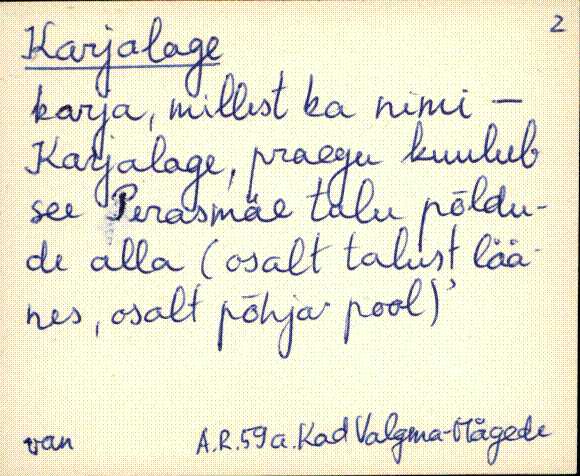 2
Karjalage
karja, millest ka nimi —
Karjalage, praegu kuulub
see Perasmäe talu põldu-
de alla (osalt talust lää-
nes, osalt põhja pool)’
van A.R. 59a. Kad Valgma-Mägede